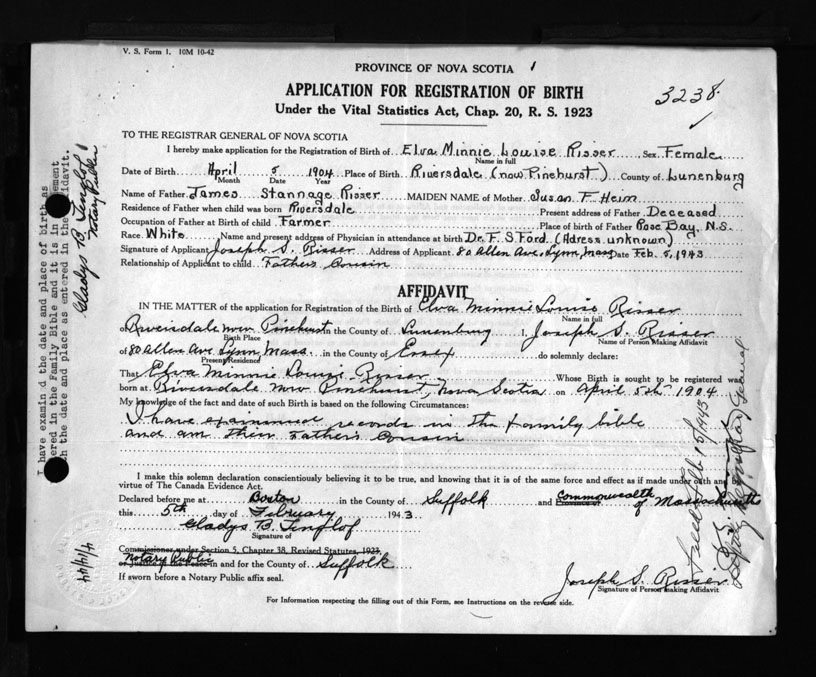 V. S. Form 1. 10M 10-42
PROVINCE OF NOVA SCOTIA
APPLICATION FOR REGISTRATION OF BIRTH
Under the Vital Statistics Act, Chap. 20, R. S. 1923
3238
TO THE REGISTRAR GENERAL OF NOVA SCOTIA
I hereby make application for the Registration of Birth of Elva Minnie Louise Risser Sex Female
Name in full
Date of Birth April 5 1904 Place of Birth Riversdale (now Pinehurst) County of Lunenburg
Month Date Year
Name of Father James Stannage Risser MAIDEN NAME of Mother Susan F. Heim
Residence of Father when child was born Riversdale Present address of Father Deceased
Occupation of Father at Birth of child Farmer Place of Birth of Father Rose Bay, N.S.
Race White Name and present address of Physician in attendance at birth Dr. F. S. Ford (Adress unknown)
Signature of Applicant Joseph S. Risser Address of Applicant 80 Allen Ave, Lynn, Mass Date Feb. 5, 1943
Relationship of Applicant to child Father's Cousin
AFFIDAVIT
IN THE MATTER of the application for Registration of the Birth of Elva Minnie Louise Risser
Name in full
of Riversdale now Pinehurst in the County of Lunenburg I, Joseph S. Risser
Birth Place Name of Person Making Affidavit
of 80 Allen Ave Lynn, Mass. in the County of Essex do solemnly declare:
Present Residence
That Elva Minnie Louise Risser Whose Birth is sought to be registered was
born at Riversdale now Pinehurst, Nova Scotia on April 5th 1904
My knowledge of the fact and date of such Birth is based on the following Circumstances:
I have examined records in the family bible
and am their Father's Cousin
I make this solemn declaration conscientiously believing it to be true, and knowing that it is of the same force and effect as if made under oath and
virtue of The Canada Evidence Act.
Declared before me at Boston in the County of Suffolk and Commonwealth of Massachusetts
Province of
this 5th day of February 1943
Gladys B. Tenglof
Signature of
Commissioner under Section 5, Chapter 38, Revised Statutes, 1923
Notary Public
or Justice of the Peace in and for the County of Suffolk
If sworn before a Notary Public affix seal.
Joseph S. Risser
Signature of Person Making Affidavit
For Information respecting the filling out of this Form, see Instructions on the reverse side.
I have examin d the date and place of birth as
ered in the Family Bible and it is in ement
h the date and place as entered in the idavit.
Gladys B. Tenglof
Notary Public
Deputy Registrar General